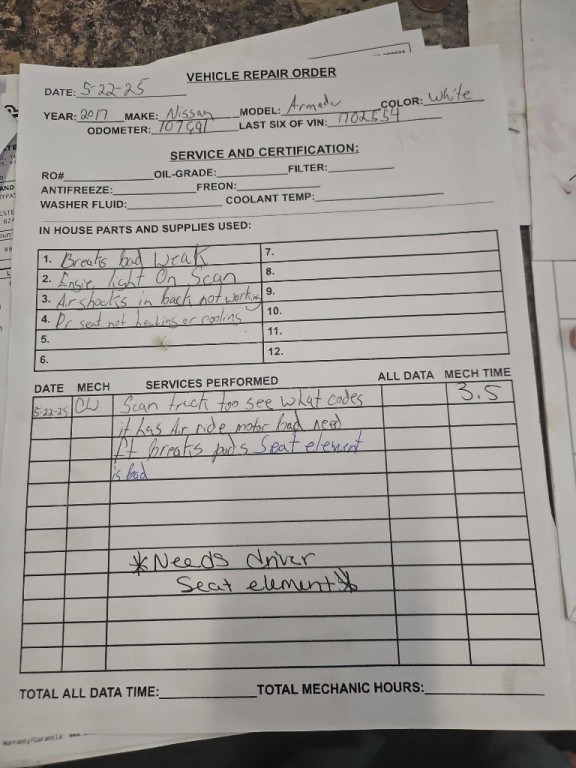 VEHICLE REPAIR ORDER
DATE: 5-22-25
YEAR: 2017 MAKE: Nissan MODEL: Armada COLOR: White
ODOMETER: 107691 LAST SIX OF VIN: 1702554
SERVICE AND CERTIFICATION:
RO# OIL-GRADE: FILTER:
ANTIFREEZE: FREON:
WASHER FLUID: COOLANT TEMP:
IN HOUSE PARTS AND SUPPLIES USED:
1. Breaks bad Weak 7.
2. Engie light On Scan 8.
3. Air shocks in back not working 9.
4. Dr seat not heating or cooling 10.
5. 11.
6. 12.
DATE MECH SERVICES PERFORMED ALL DATA MECH TIME
5-22-25 CW Scan truck too see what codes 3.5
it has Air ride motor bad need
Ft breaks pads Seat element
is bad
*Needs driver
Seat element*
TOTAL ALL DATA TIME: TOTAL MECHANIC HOURS:
Warranty/Garantia: